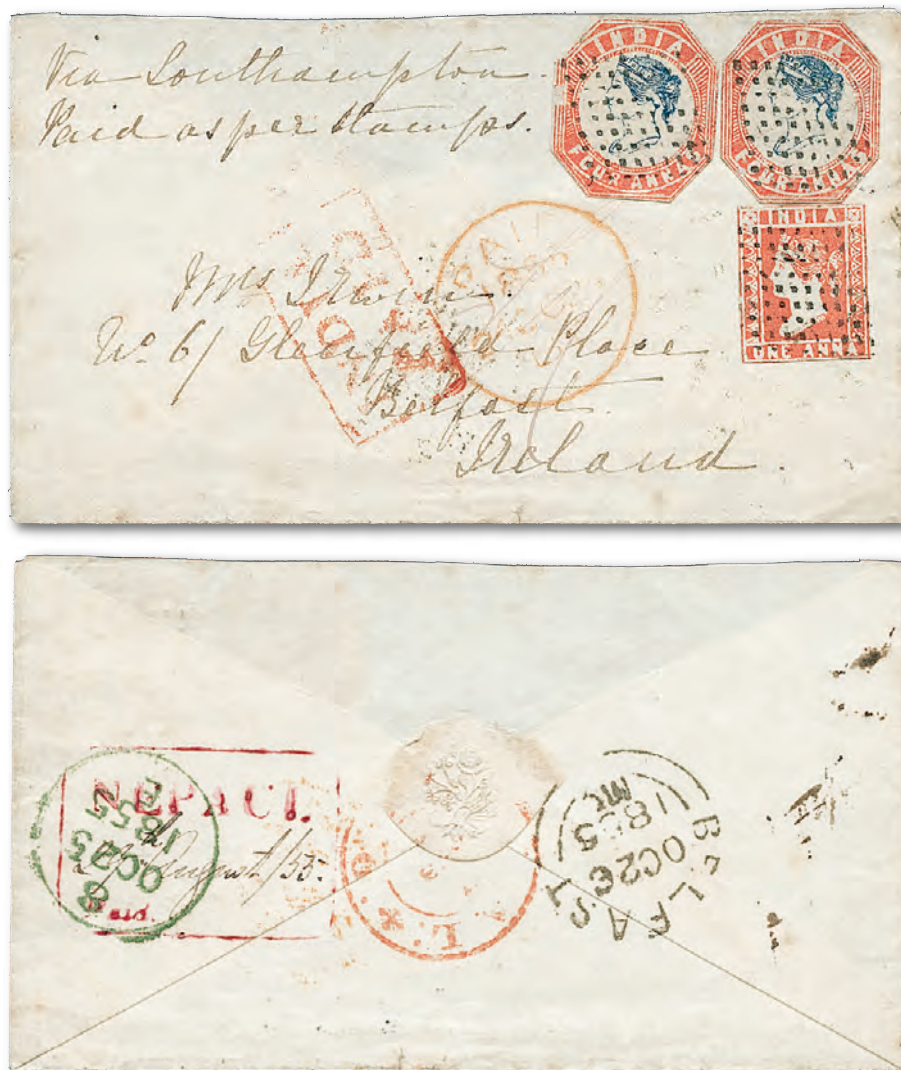 Via Southampton.
Paid as per Stamps.
INDIA
FOUR ANNAS
INDIA
FOUR ANNAS
INDIA
ONE ANNA
PAID
Mrs Irwin
No 6/ Place
Belfast.
Ireland.
NEPAUL.
August/55.
Paid.
8
OC25
1855
BELFAST
OC26
1855